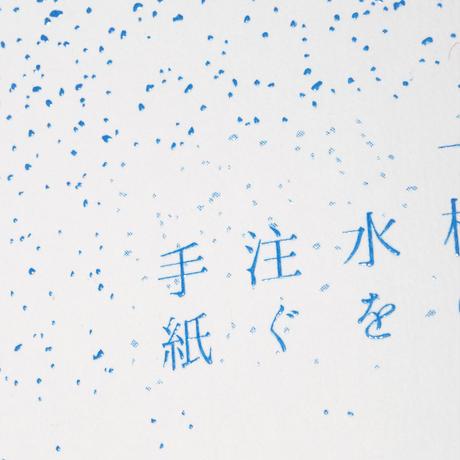 水を
注ぐ
手紙